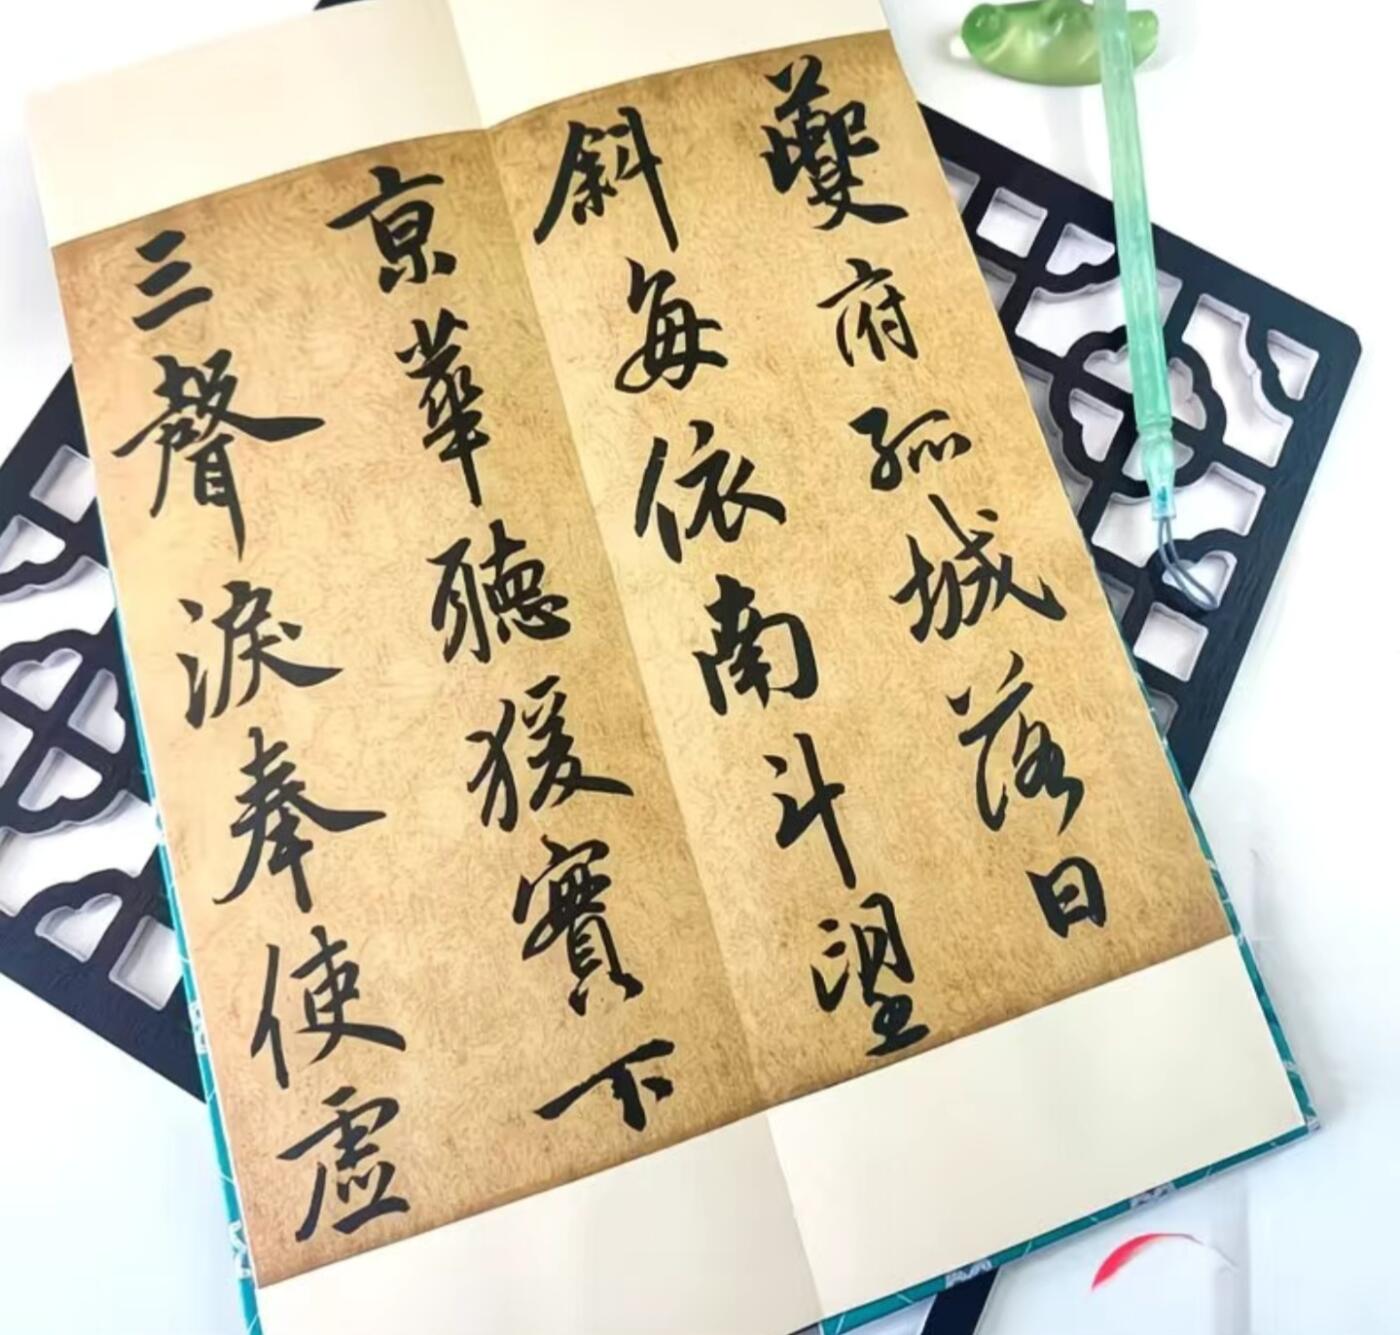 夔府孤城落日
斜每依南斗望
京華聽猨實下
三聲淚奉使虛